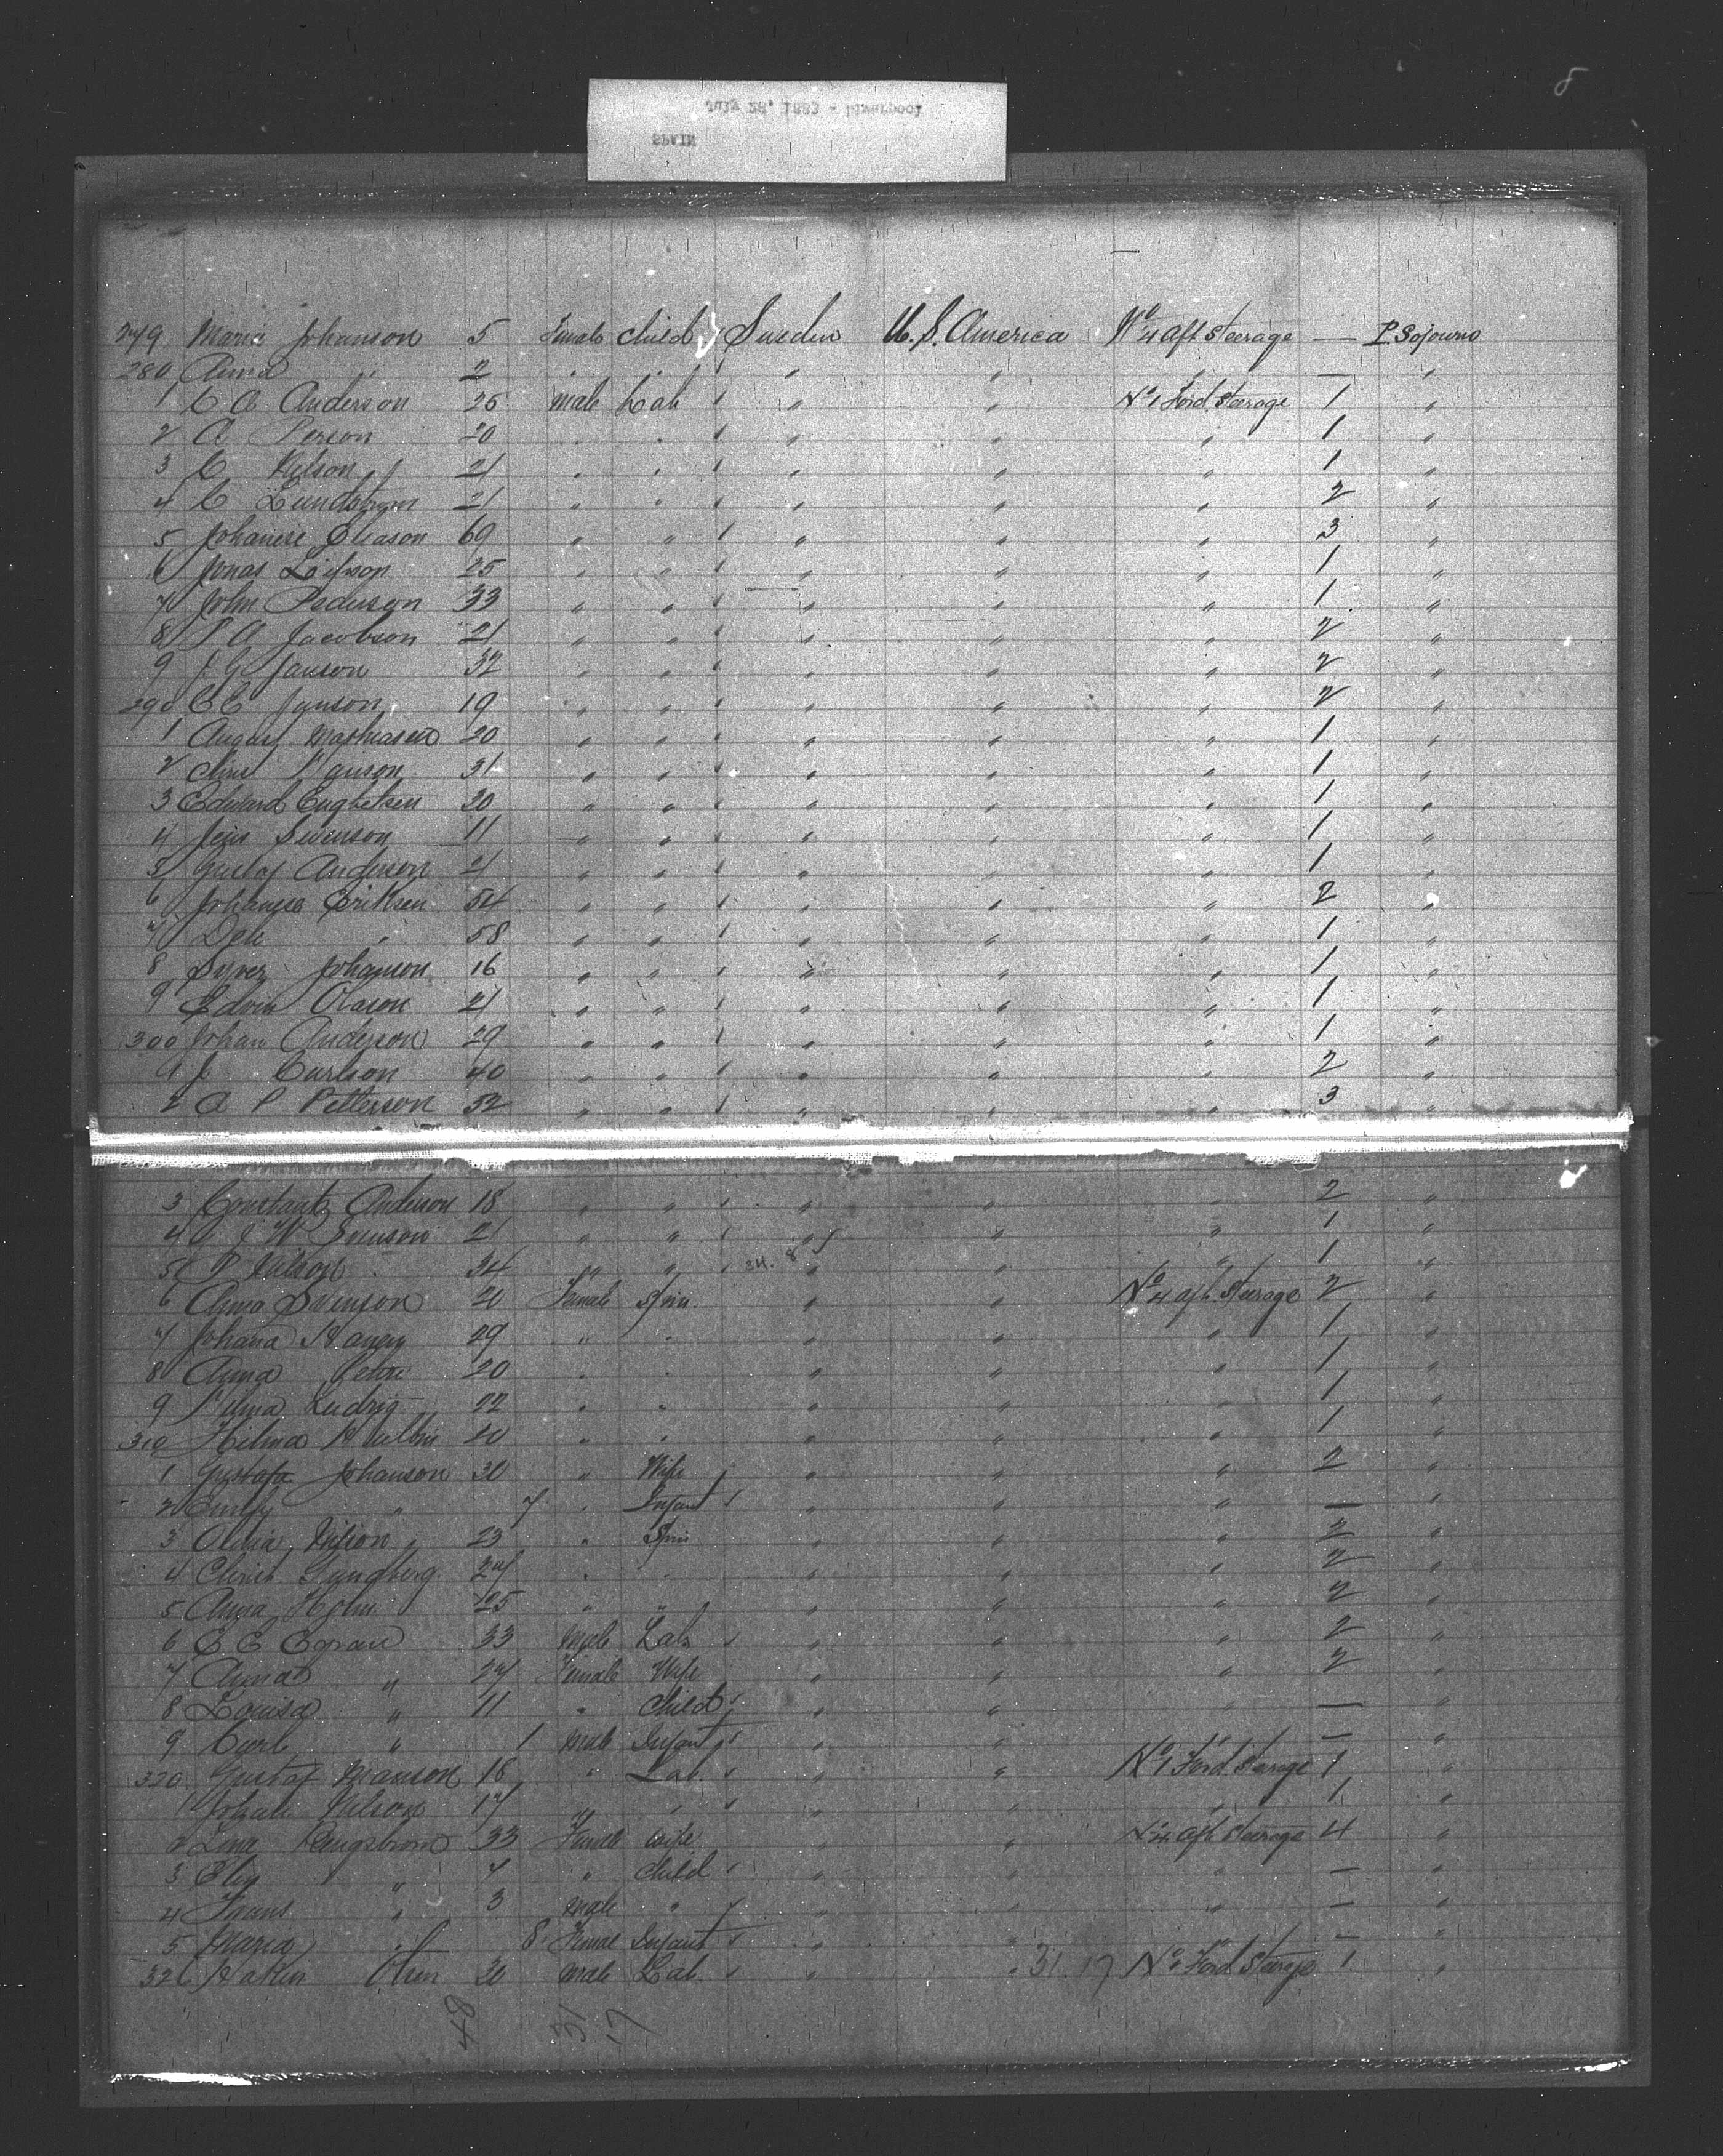 8
July 28, 1883 - Liverpool
SPAIN
279 Maria Johanson 5 Female Child Sweden U. S. America No 4 Aft Steerage — P. Sojourn
280 Anna " 2 " " " " " — "
1 C A Anderson 25 Male Lab " " No 1 Ford Steerage 1 "
2 A Person 20 " " " " " 1 "
3 C Nilson 21 " " " " " 1 "
4 C Lundstrom 21 " " " " " 2 "
5 Johanese Oleason 69 " " " " " 3 "
6 Jonas 25 " " " " " 1 "
7 John Pederson 33 " " " " " 1 "
8 P A Jacobson 21 " " " " " 2 "
9 J G Janson 32 " " " " " 2 "
290 C C Janson 19 " " " " " 2 "
1 August Mathiasen 20 " " " " " 1 "
2 31 " " " " " 1 "
3 Edward Engbetsen 30 " " " " " 1 "
4 Jens Swenson 11 " " " " " 1 "
5 Gustaf Anderson 21 " " " " " 1 "
6 Johanese Eriksen 54 " " " " " 2 "
7 " 58 " " " " " 1 "
8 Johanson 16 " " " " " 1 "
9 Edvin Olason 21 " " " " " 1 "
300 Johan Anderson 29 " " " " " 1 "
1 J Carlson 40 " " " " " 2 "
2 A P Petterson 52 " " " " " 3 "
3 Constant Anderson 18 " " " " " 2 "
4 J W Svenson 21 " " " " " 1 "
5 P Nilson 34 " " 34. 8 " " " 1 "
6 Anna Svenson 20 Female Spin. " " No 4 Aft Steerage 2 "
7 Johana 29 " " " " " 1 "
8 Anna 20 " " " " " 1 "
9 Ludvig 22 " " " " " 1 "
310 Hilma 20 " " " " " 1 "
1 Gustafa Johanson 30 " Wife " " " 2 "
2 Emily " 7 " Infant " " " — "
3 Nilson 23 " Spin " " " 2 "
4 24 " " " " " 2 "
5 Anna Holm 25 " " " " " 2 "
6 C E 33 Male Lab " " " 2 "
7 Anna " 27 Female Wife " " " 2 "
8 Louisa " 11 " Child " " " — "
9 " 1 Male Infant " " " — "
320 Gustaf Manson 18 " Lab. " " No 1 Ford Steerage 1 "
1 Johan Nilson 17 " " " " " 1 "
2 Lina 33 Female Wife " " No 4 Aft Steerage 4 "
3 " " Child " " " — "
4 Frans " 3 Male " " " " — "
5 Maria " 8 Female Infant " " " — "
326 Olsen 30 Male Lab. " " 31. 17 No 1 Ford Steerage 1 "
48 31 17